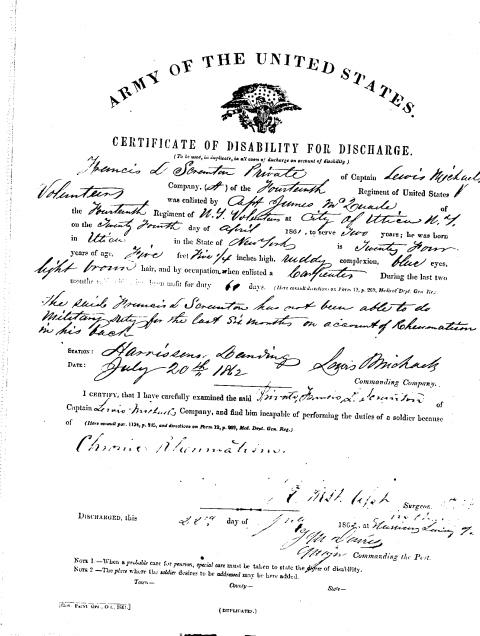 ARMY OF THE UNITED STATES.
CERTIFICATE OF DISABILITY FOR DISCHARGE.
(To be used, in duplicate, in all cases of discharge on account of disability.)
Francis L Scranton Private of Captain Lewis Michaels
Company, (A) of the Fourteenth Regiment of United States
Volunteers was enlisted by Capt James McQuade of
the Fourteenth Regiment of N.Y. Volunteers at City of Utica N.Y.
on the Twenty Fourth day of April 1861, to serve Two years; he was born
in Utica in the State of New York is Twenty Four
years of age, Five feet Five 1/4 inches high, ruddy complexion, blue eyes,
light brown hair, and by occupation when enlisted a Carpenter During the last two
months unfit for duty 60 days.
The said Francis L Scranton has not been able to do
Military duty for the last Six months on account of Rheumatism
in his back
STATION: Harrisons Landing
DATE: July 20th 1862 Lewis Michaels
Commanding Company.
I CERTIFY, that I have carefully examined the said Private Francis L. Scranton of
Captain Lewis Michaels Company, and find him incapable of performing the duties of a soldier because
of (Here consult par. 1134, p. 245, and directions on Form 12, p. 269, Med. Dept. Gen. Reg.)
Chronic Rheumatism.
Surgeon.
DISCHARGED, this day of 1862, at
Major Commanding the Post.
NOTE 1.—When a probable case for pension, special care must be taken to state the degree of disability.
NOTE 2.—The place where the soldier desires to be addressed may be here added.
Town— County— State—
(DUPLICATES.)